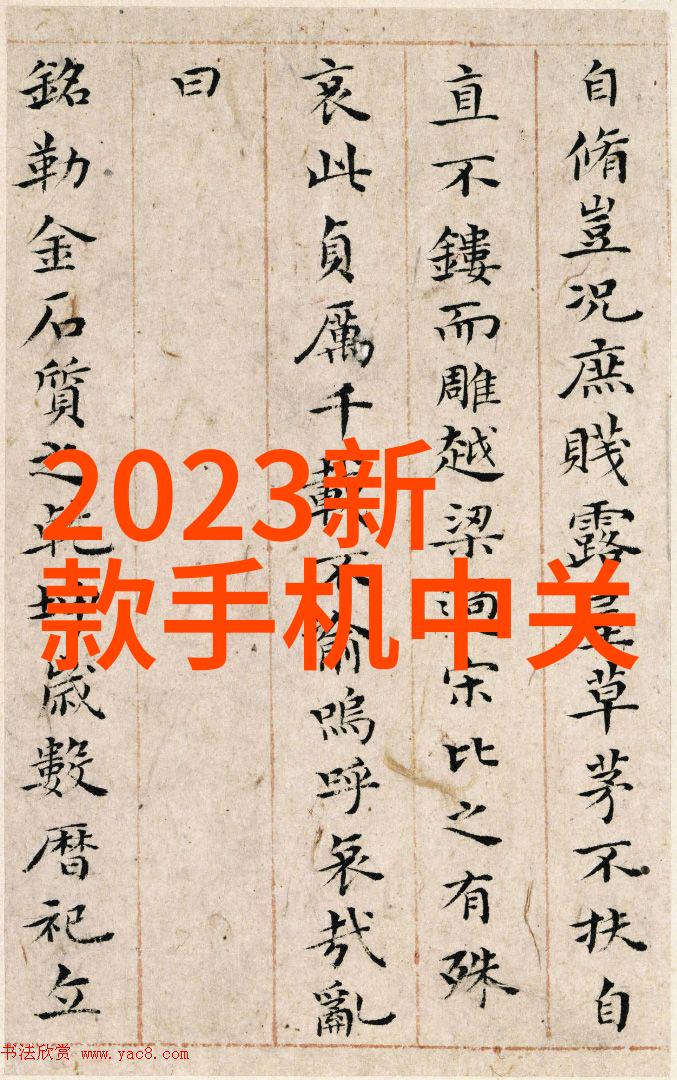 自脩豈況庶賤露屋草茅不扶自
直不鏤而雕越梁過宋比之有殊
哀此貞厲千載不渝嗚呼哀哉亂
曰
銘勒金石質之乾坤歲數曆祀立
2023新
款手机中关
书法欣赏 www.yac8.com